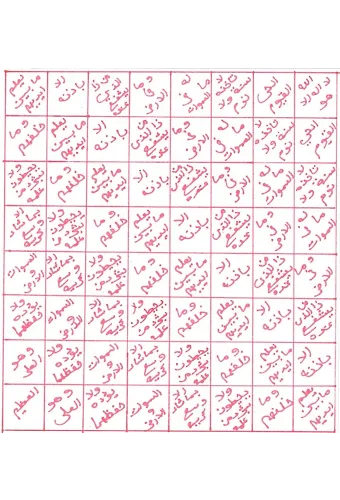 الله لا اله الا هو الحي القيوم لا تاخذه سنة ولا نوم له ما في السموات وما في الارض من ذا الذي يشفع عنده الا باذنه يعلم ما بين ايديهم
الحي القيوم لا تاخذه سنة ولا نوم له ما في السموات وما في الارض من ذا الذي يشفع عنده الا باذنه يعلم ما بين ايديهم وما خلفهم
لا تاخذه سنة ولا نوم له ما في السموات وما في الارض من ذا الذي يشفع عنده الا باذنه يعلم ما بين ايديهم وما خلفهم ولا يحيطون بشيء من علمه
له ما في السموات وما في الارض من ذا الذي يشفع عنده الا باذنه يعلم ما بين ايديهم وما خلفهم ولا يحيطون بشيء من علمه الا بما شاء وسع كرسيه
وما في الارض من ذا الذي يشفع عنده الا باذنه يعلم ما بين ايديهم وما خلفهم ولا يحيطون بشيء من علمه الا بما شاء وسع كرسيه السموات والارض
من ذا الذي يشفع عنده الا باذنه يعلم ما بين ايديهم وما خلفهم ولا يحيطون بشيء من علمه الا بما شاء وسع كرسيه السموات والارض ولا يؤده حفظهما
الا باذنه يعلم ما بين ايديهم وما خلفهم ولا يحيطون بشيء من علمه الا بما شاء وسع كرسيه السموات والارض ولا يؤده حفظهما وهو العلي
يعلم ما بين ايديهم وما خلفهم ولا يحيطون بشيء من علمه الا بما شاء وسع كرسيه السموات والارض ولا يؤده حفظهما وهو العلي العظيم